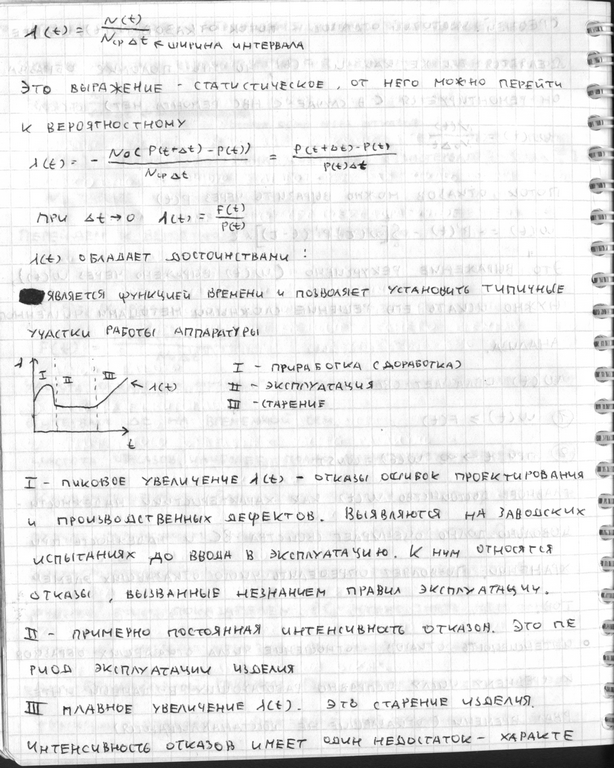 λ(t) = N(t) / Nср Δt ← ширина интервала
Это выражение - статистическое, от него можно перейти
к вероятностному
λ(t) = - N₀( P(t+Δt) - P(t)) / Nср Δt = P(t+Δt) - P(t) / P(t)Δt
при Δt→0 λ(t) = F(t) / P(t)
λ(t) обладает достоинствами:
является функцией времени и позволяет установить типичные
участки работы аппаратуры
λ I II III ← λ(t) t
I - приработка (доработка)
II - эксплуатация
III - старение
I - пиковое увеличение λ(t) - отказы ошибок проектирования
и производственных дефектов. Выявляются на заводских
испытаниях до ввода в эксплуатацию. К ним относятся
отказы, вызванные незнанием правил эксплуатации.
II - примерно постоянная интенсивность отказов. Это пе
риод эксплуатации изделия
III плавное увеличение λ(t). Это старение изделия.
Интенсивность отказов имеет один недостаток - характе